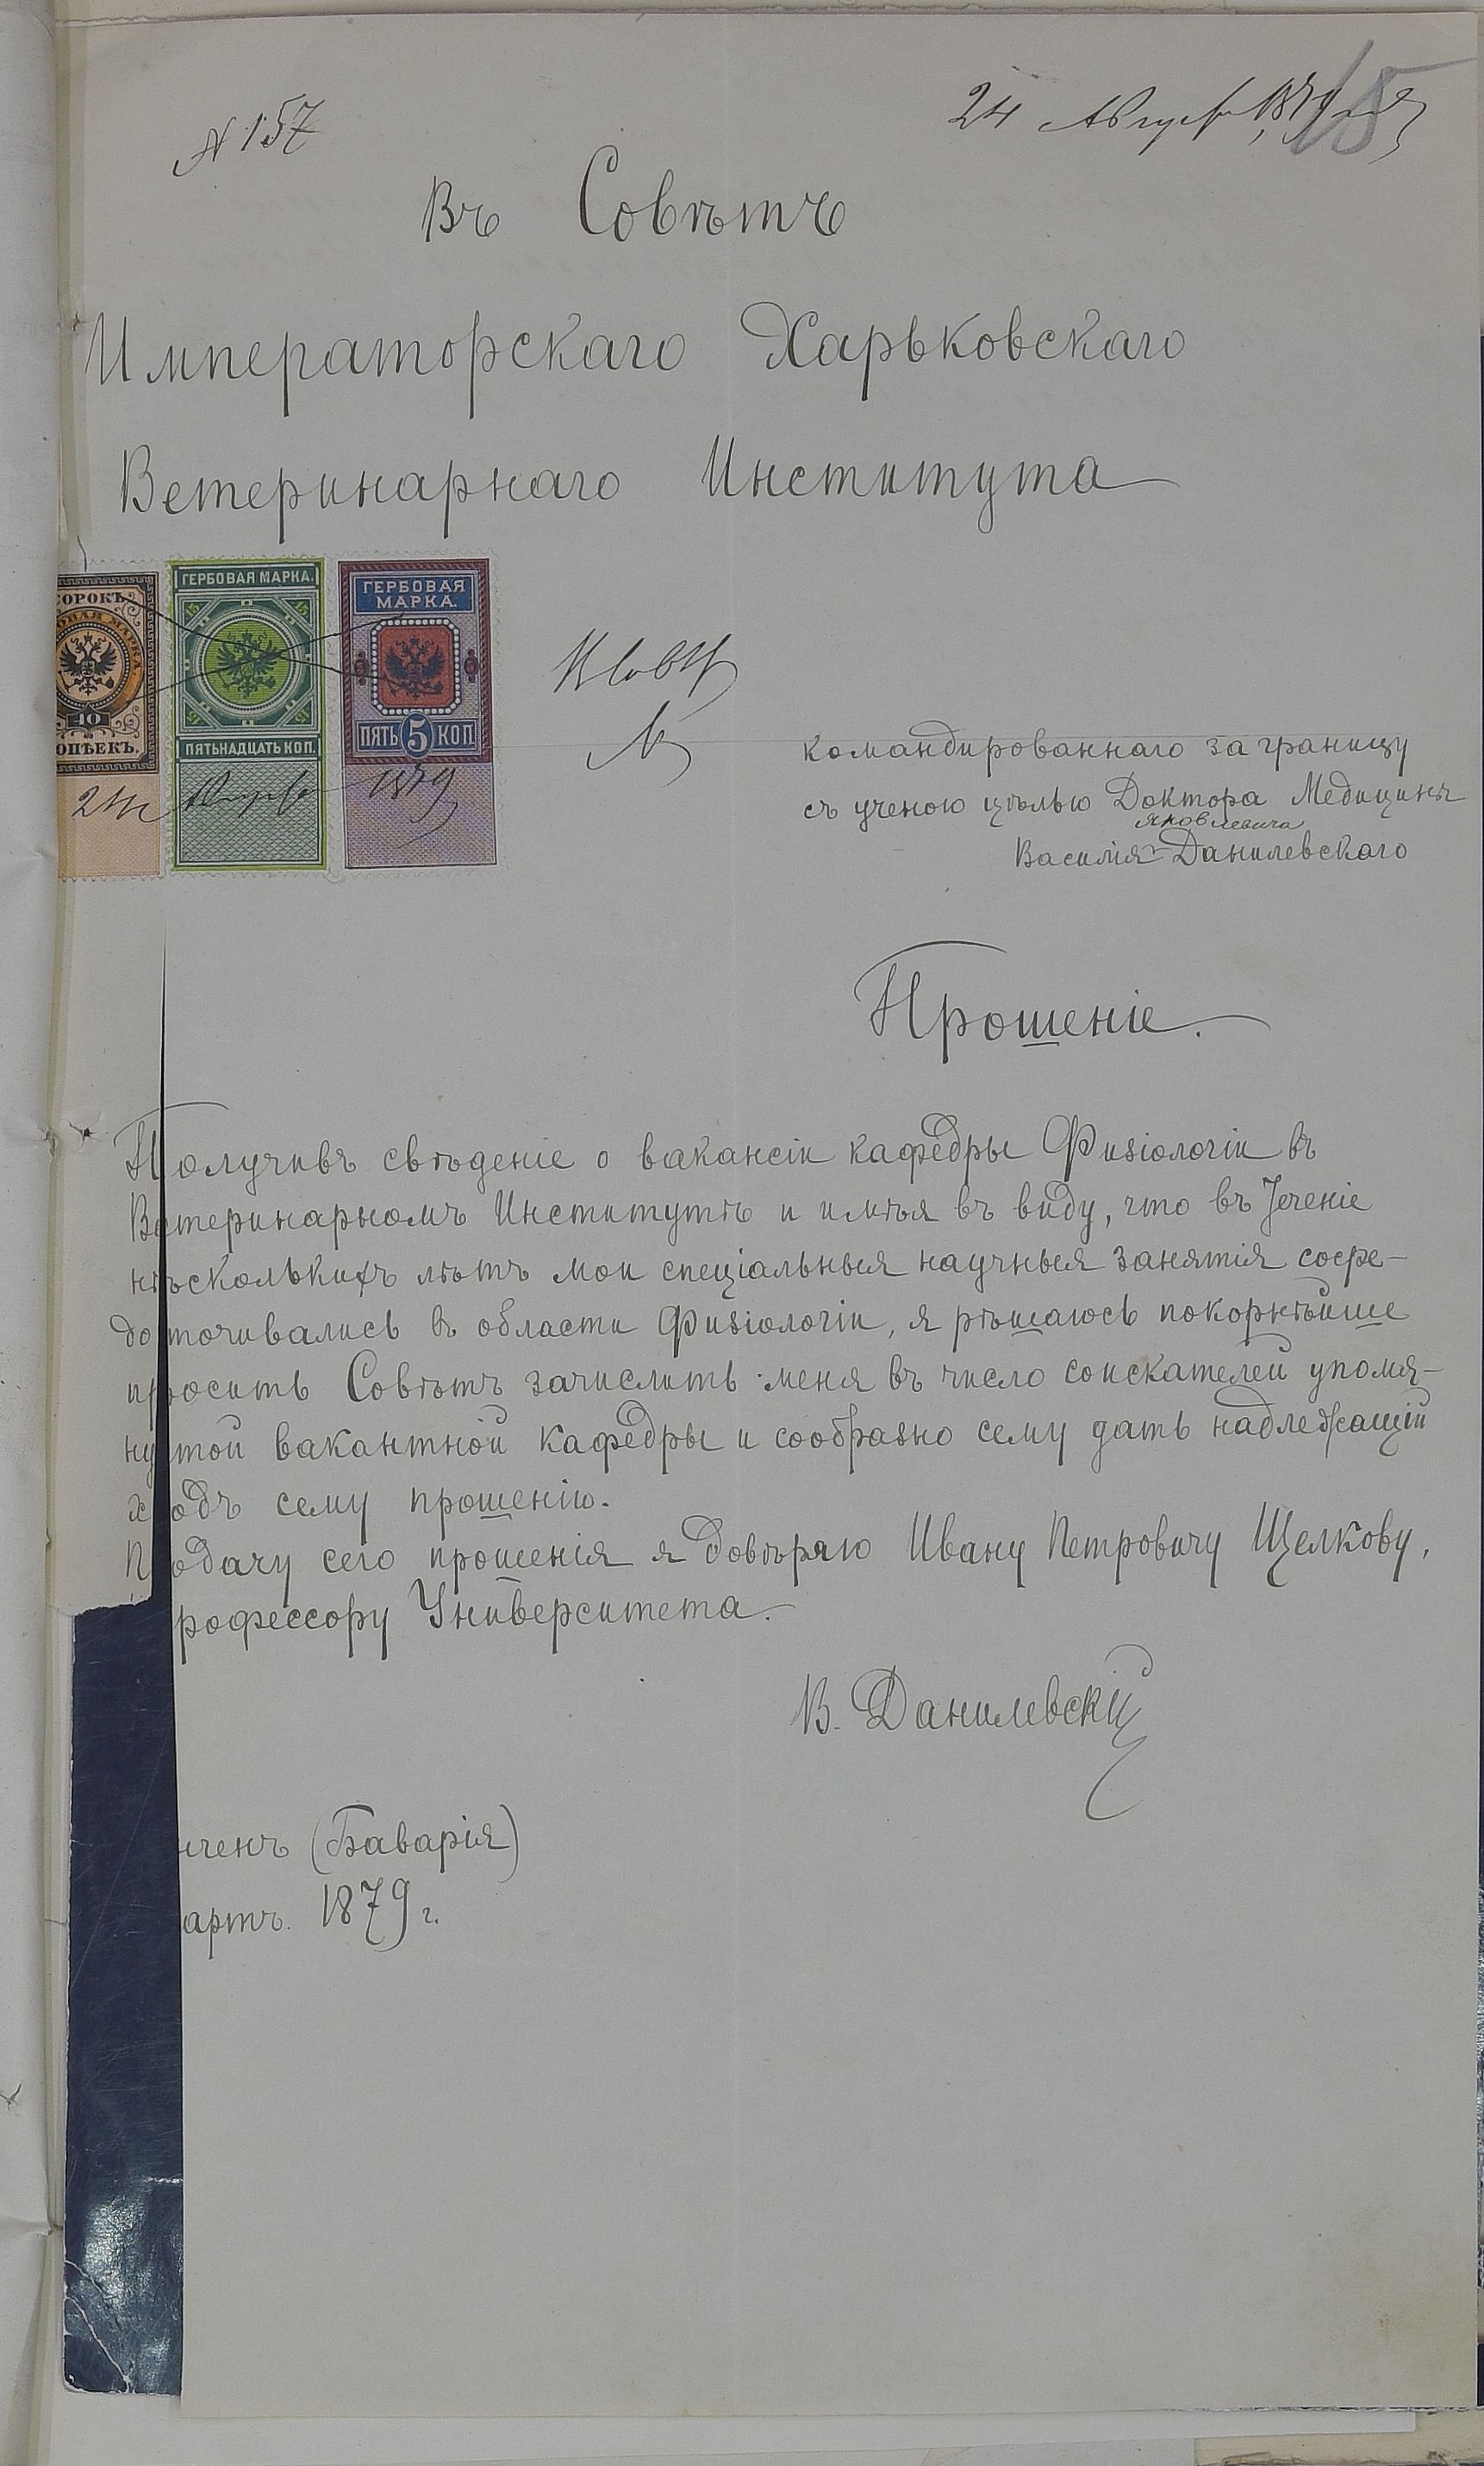 № 157
24 Августа 1879 года
15
Въ Совѣтъ
Императорскаго Харьковскаго
Ветеринарнаго Института
СОРОКЪ
40
КОПѢЕКЪ.
ГЕРБОВАЯ МАРКА.
15 15
15 15
ПЯТЬНАДЦАТЬ КОП.
ГЕРБОВАЯ
МАРКА.
ПЯТЬ 5 КОП
24 Августа 1879
командированнаго за границу
съ ученою цѣлью Доктора Медицины
Яковлевича
Василія Данилевскаго
Прошеніе.
Получивъ свѣденіе о вакансіи кафедры Физіологіи въ
Ветеринарномъ Институтѣ и имѣя въ виду, что въ теченіе
нѣсколькихъ лѣтъ мои спеціальныя научныя занятія сосре-
доточивались въ области Физіологіи, я рѣшаюсь покорнѣйше
просить Совѣтъ зачислить меня въ число соискателей упомя-
нутой вакантной кафедры и сообразно сему дать надлежащій
ходъ сему прошенію.
Подачу сего прошенія я довѣряю Ивану Петровичу Щелкову,
рофессору Университета.
В. Данилевскій
нченъ (Баварія)
артъ. 1879 г.